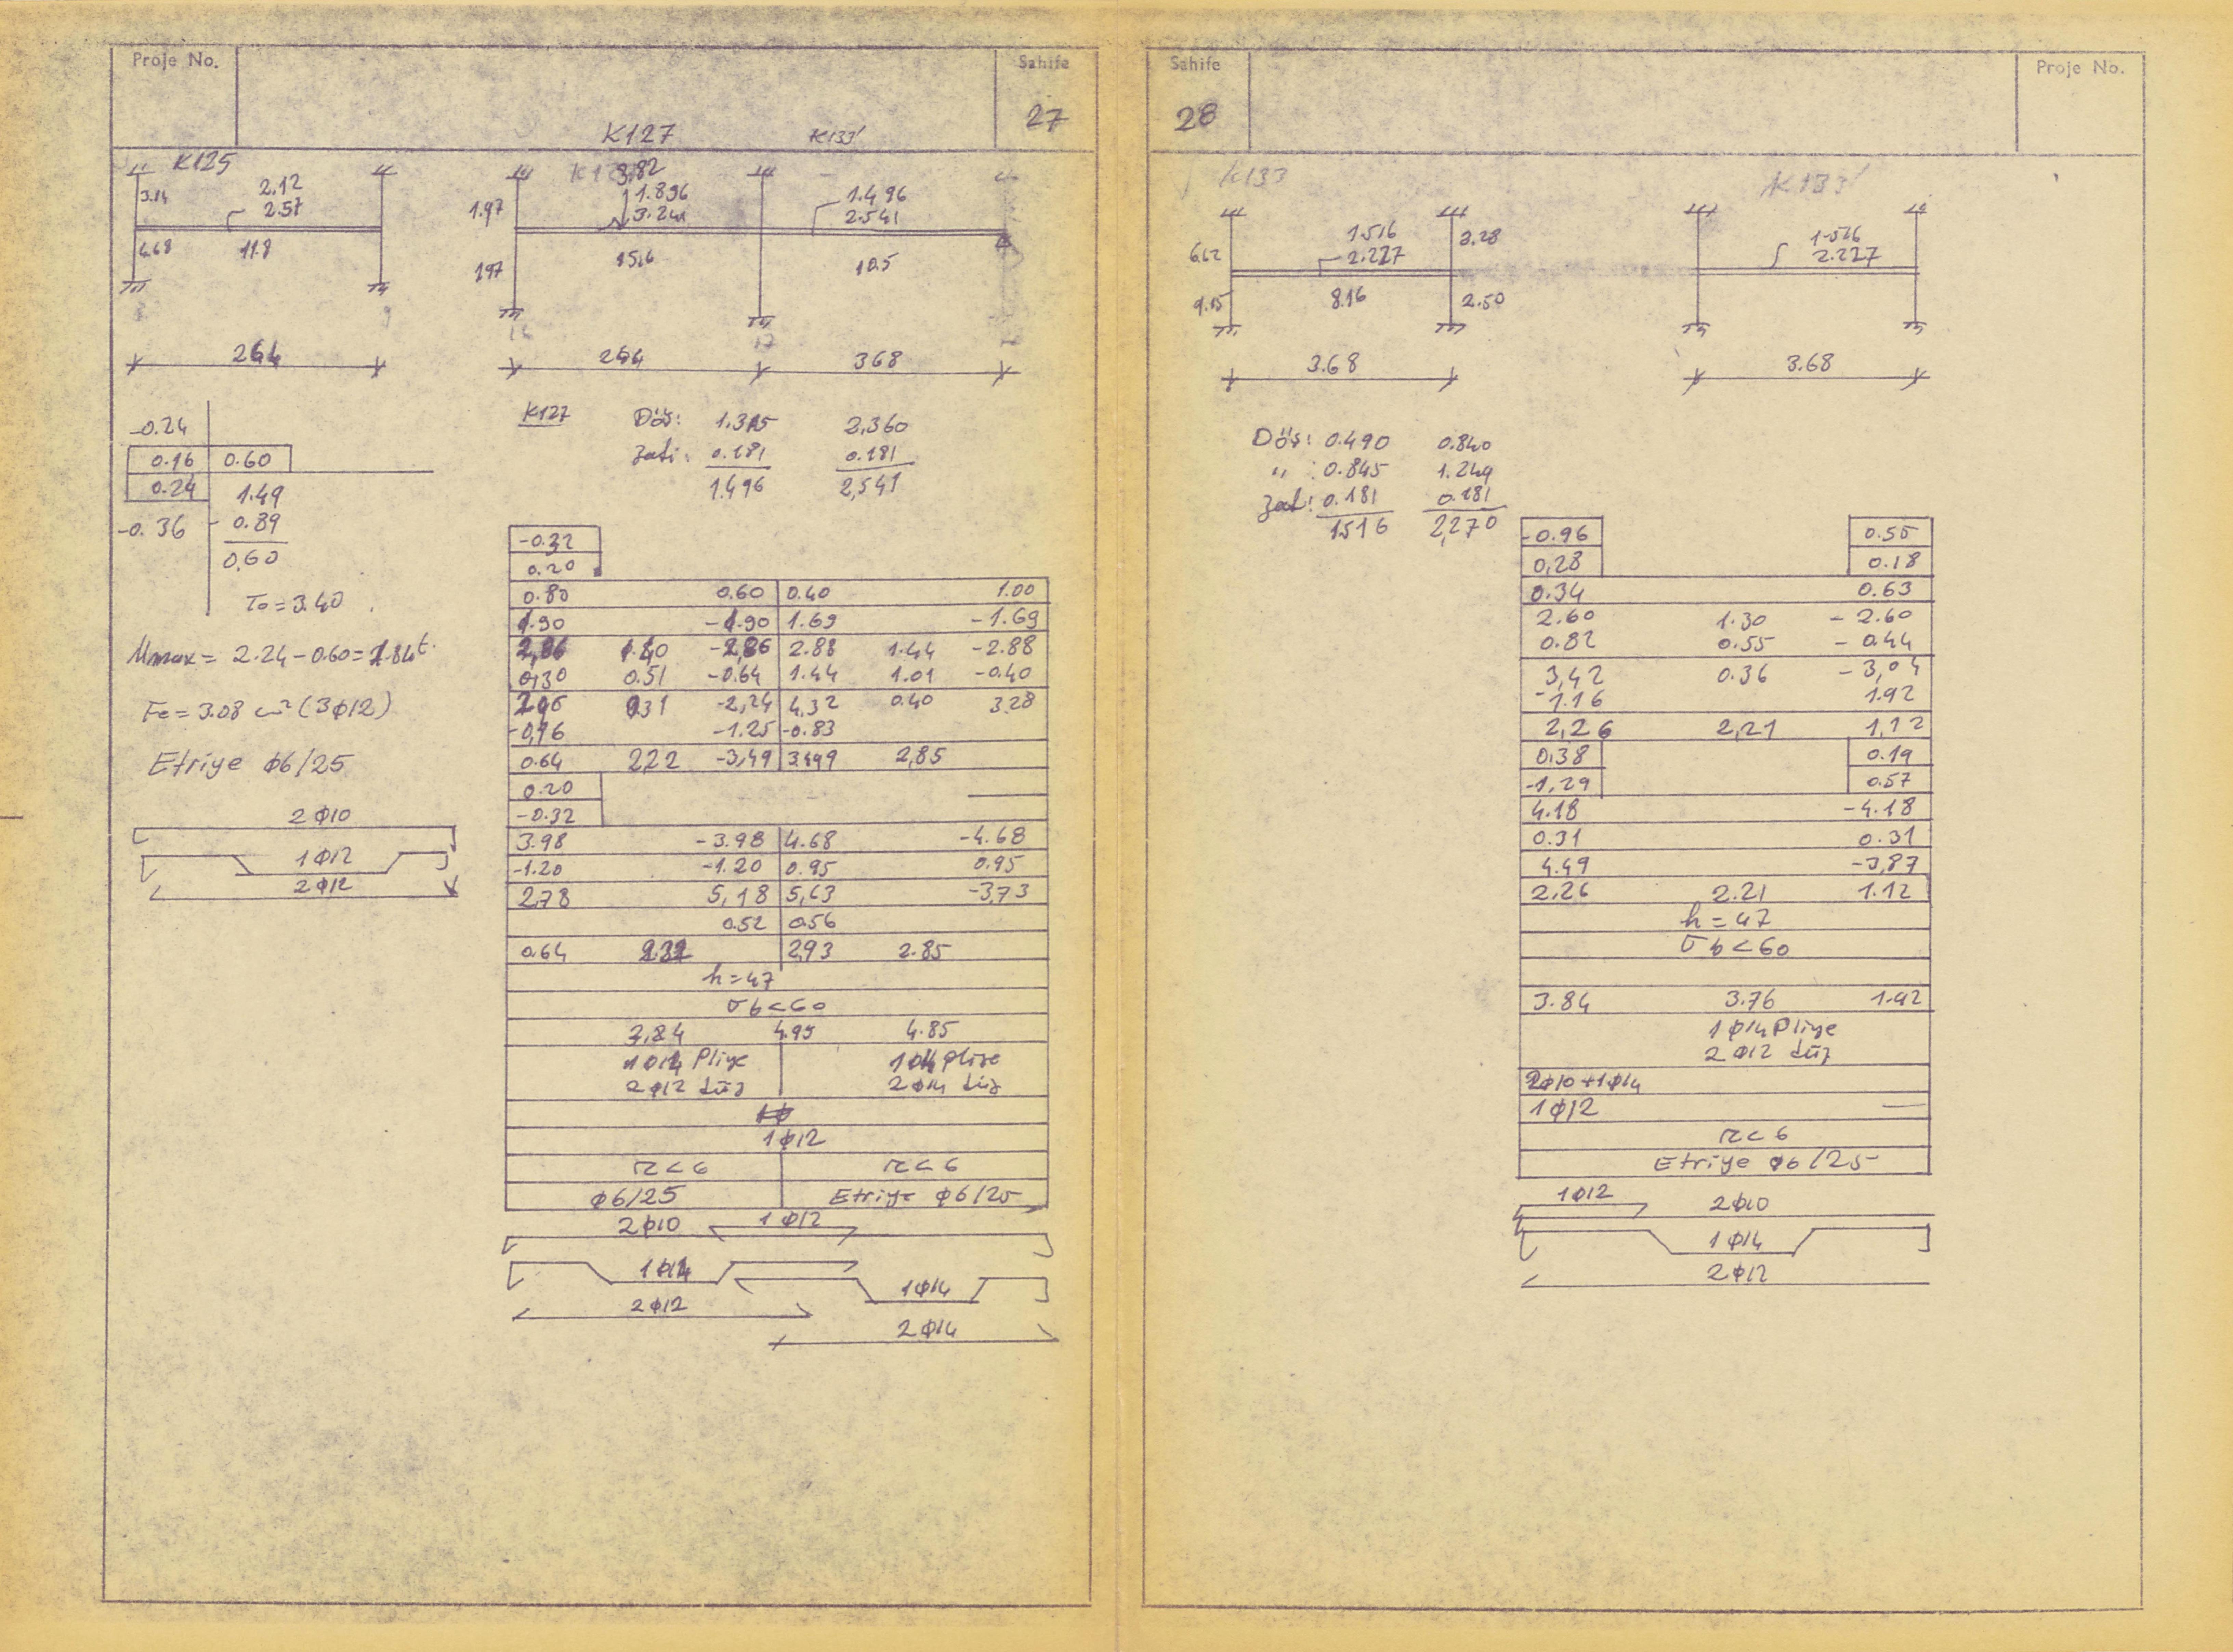 Proje No.
Sahife
27
K127
K133'
K125
3.14
2.12
2.57
6.68
11.8
264
3,82
1.97
1.896
3.241
1.496
2.541
197
15,6
10.5
264
368
-0.24
0.16 0.60
0.24 1.49
-0.36 - 0.89
0,60
τo = 3.40
Mmax = 2.24 - 0.60 = 1.84t.
Fe = 3.08 cm² (3φ12)
Etriye φ6/25
2φ10
1φ12
2φ12
K127 Döş: 1.315 2,360
Zati: 0.181 0.181
1.496 2,541
-0.32
0.20
0.80 0.60 0.40 1.00
1.90 -1.90 1.69 -1.69
2,86 1.40 -2,86 2.88 1.44 -2.88
0,30 0.51 -0.64 1.44 1.01 -0.40
931 -2,24 4,32 0.40 3.28
-0,96 -1.25 -0.83
0.64 222 -3,49 3.499 2,85
0.20
-0.32
3.98 -3.98 4.68 -4.68
-1.20 -1.20 0.95 0.95
2,78 5,18 5,63 -3,73
0.52 0.56
0.64 2.32 2,93 2.85
h=47
σb<60
3,84 4.95 4.85
1φ14 Pliye 1φ14 pliye
2φ12 düz 2φ14 düz
1φ12
τ<6 τ<6
φ6/25 Etriye φ6/25
2φ10 1φ12
1φ14
1φ14
2φ12
2φ14
Sahife
Proje No.
28
K133
K133'
6.62
1.516
2.227
3.28
9.15
8.16
2.50
1.516
2.227
3.68
3.68
Döş: 0.490 0.840
" : 0.845 1.249
Zat: 0.181 0.181
1516 2,270
-0.96 0.55
0,28 0.18
0.34 0.63
2.60 1.30 - 2.60
0.82 0.55 - 0.44
3,42 0.36 - 3,04
-1.16 1.92
2,26 2,21 1,12
0,38 0.19
-1,29 0.57
4.18 -4.18
0.31 0.31
4.49 -3,87
2.26 2.21 1.12
h = 47
σb<60
3.84 3.76 1.92
1φ14 Pliye
2φ12 düz
2φ10+1φ14
1φ12 —
τ< 6
Etriye φ6/25
1φ12 2φ10
1φ14
2φ12